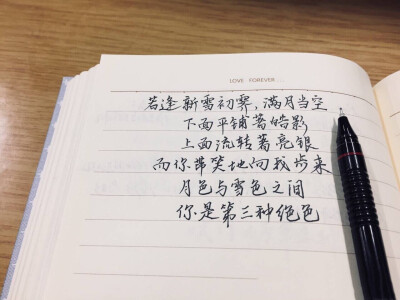 LOVE FOREVER...
若逢新雪初霁，满月当空
下面平铺著皓影
上面流转著亮银
而你带笑地向我步来
月色与雪色之间
你是第三种绝色